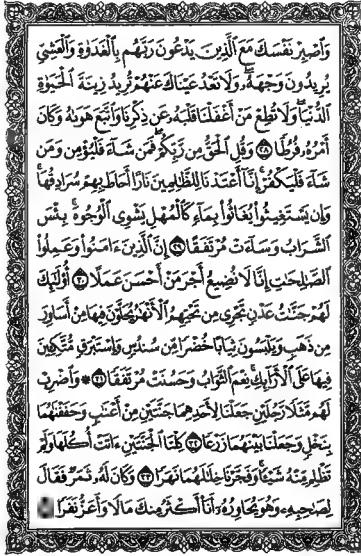 وَٱصۡبِرۡ نَفۡسَكَ مَعَ ٱلَّذِينَ يَدۡعُونَ رَبَّهُم بِٱلۡغَدَوٰةِ وَٱلۡعَشِىِّ
يُرِيدُونَ وَجۡهَهُۥۖ وَلَا تَعۡدُ عَيۡنَاكَ عَنۡهُمۡ تُرِيدُ زِينَةَ ٱلۡحَيَوٰةِ
ٱلدُّنۡيَاۖ وَلَا تُطِعۡ مَنۡ أَغۡفَلۡنَا قَلۡبَهُۥ عَن ذِكۡرِنَا وَٱتَّبَعَ هَوَىٰهُ وَكَانَ
أَمۡرُهُۥ فُرُطٗا ٢٨ وَقُلِ ٱلۡحَقُّ مِن رَّبِّكُمۡۖ فَمَن شَآءَ فَلۡيُؤۡمِن وَمَن
شَآءَ فَلۡيَكۡفُرۡۚ إِنَّآ أَعۡتَدۡنَا لِلظَّٰلِمِينَ نَارًا أَحَاطَ بِهِمۡ سُرَادِقُهَاۚ
وَإِن يَسۡتَغِيثُواْ يُغَاثُواْ بِمَآءٖ كَٱلۡمُهۡلِ يَشۡوِى ٱلۡوُجُوهَۚ بِئۡسَ
ٱلشَّرَابُ وَسَآءَتۡ مُرۡتَفَقًا ٢٩ إِنَّ ٱلَّذِينَ ءَامَنُواْ وَعَمِلُواْ
ٱلصَّٰلِحَٰتِ إِنَّا لَا نُضِيعُ أَجۡرَ مَنۡ أَحۡسَنَ عَمَلًا ٣٠ أُوْلَٰٓئِكَ
لَهُمۡ جَنَّٰتُ عَدۡنٖ تَجۡرِى مِن تَحۡتِهِمُ ٱلۡأَنۡهَٰرُ يُحَلَّوۡنَ فِيهَا مِنۡ أَسَاوِرَ
مِن ذَهَبٖ وَيَلۡبَسُونَ ثِيَابًا خُضۡرٗا مِّن سُندُسٖ وَإِسۡتَبۡرَقٖ مُّتَّكِـِٔينَ
فِيهَا عَلَى ٱلۡأَرَآئِكِۚ نِعۡمَ ٱلثَّوَابُ وَحَسُنَتۡ مُرۡتَفَقٗا ٣١ ۞ وَٱضۡرِبۡ
لَهُم مَّثَلٗا رَّجُلَيۡنِ جَعَلۡنَا لِأَحَدِهِمَا جَنَّتَيۡنِ مِنۡ أَعۡنَٰبٖ وَحَفَفۡنَٰهُمَا
بِنَخۡلٖ وَجَعَلۡنَا بَيۡنَهُمَا زَرۡعٗا ٣٢ كِلۡتَا ٱلۡجَنَّتَيۡنِ ءَاتَتۡ أُكُلَهَا وَلَمۡ
تَظۡلِم مِّنۡهُ شَيۡـٔٗاۚ وَفَجَّرۡنَا خِلَٰلَهُمَا نَهَرٗا ٣٣ وَكَانَ لَهُۥ ثَمَرٞ فَقَالَ
لِصَٰحِبِهِۦ وَهُوَ يُحَاوِرُهُۥٓ أَنَا۠ أَكۡثَرُ مِنكَ مَالٗا وَأَعَزُّ نَفَرٗا